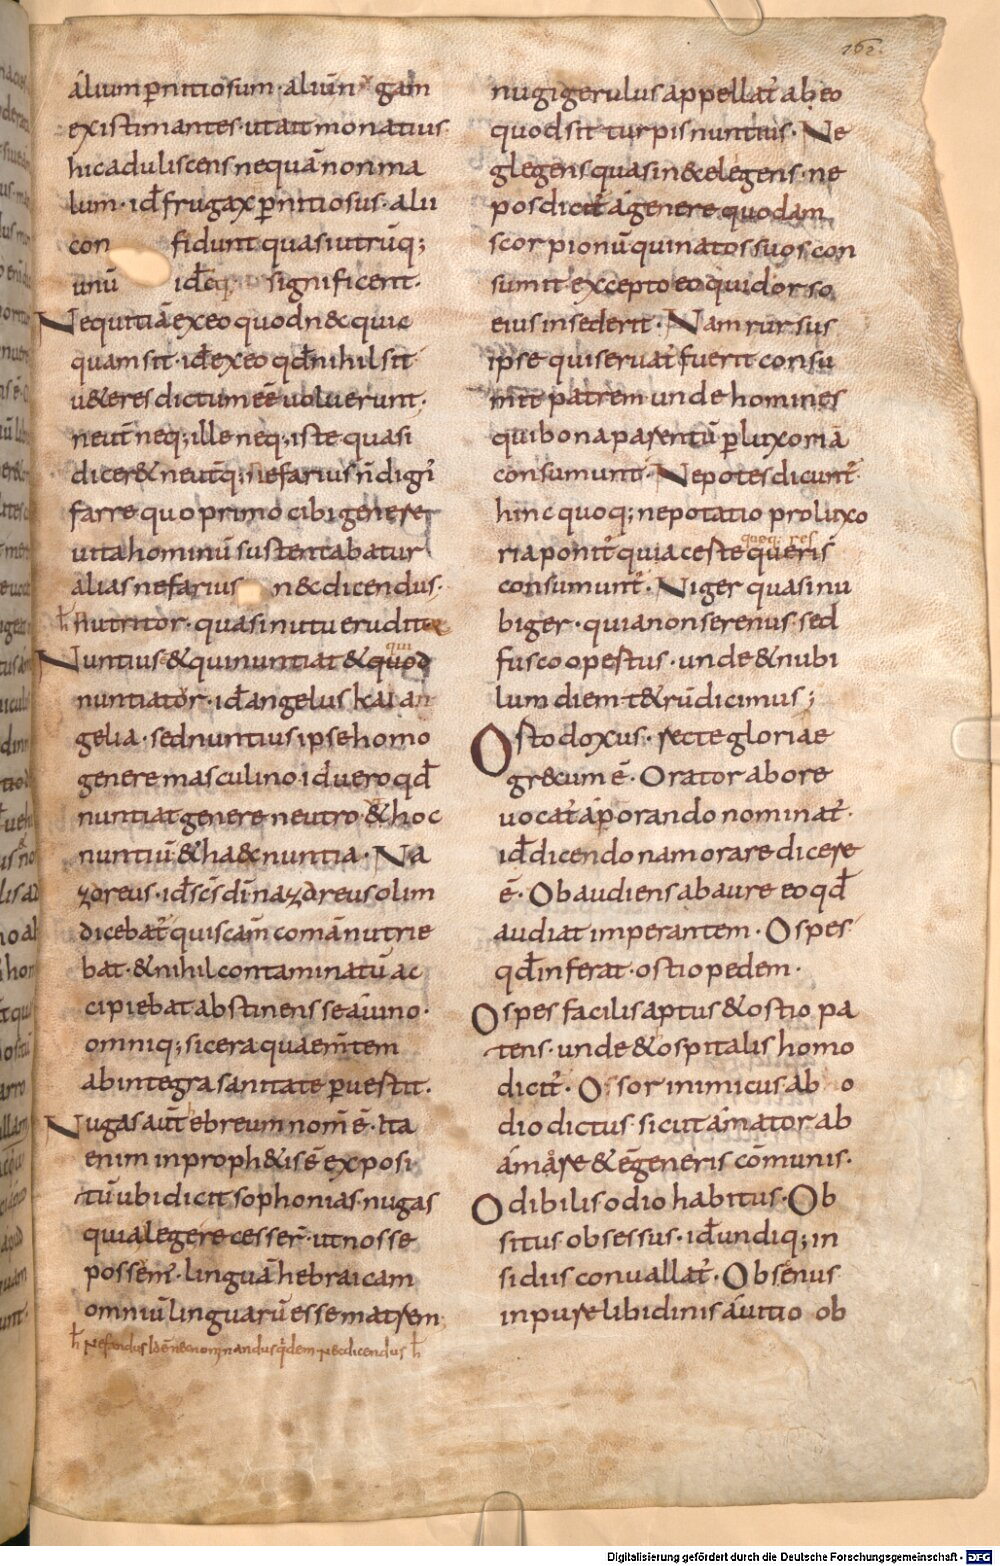 162.
alium p̄nitiosum· aliūn gam
existimantes· ut ait monatius
hic aduliscens nequā non ma
lum· id̄ frugax p̄nitiosus· alii
con fidunt quasi utrūq;
unū id̄ significent·
Nequitiā ex eo quod n& quic
quam sit· id̄ ex eo qd̄ nihil sit
u&eres dictum eē uoluerunt·
neut̄ neq; ille neq; iste quasi
dicer& neutq; nefarius n̄ dign̄
farre quo primo cibi genere
uita hominū sustentabatur
alias nefarius n&dicendus·
h̄ nutritor· quasi nutu erudit
qui
Nuntius & qui nuntiat & quod
nuntiator· id̄ angelus kai an
gelia· sed nuntius ipse homo
genere masculino id uero qd̄
nuntiat genere neutro· & hoc
nuntiū & ha& nuntia· Na
zoreus· id̄ sc̄s dī nazoreus olim
dicebat̄ qui scām comā nutrie
bat· & nihil contaminatū ac
cipiebat abstinens se a uino·
omniq; sicera quae m̄tem
ab integra sanitate p̄uestit·
Nugas aut̄ ebreum nom̄ ē· Ita
enim in proph&is ē exposi
tū ubi dicit sophonias· nugas
quia legere cesser̄· ut nosse
possem̄· linguā hebraicam
omniū linguarū esse matrem
h̄ Nefandus id ē nec nominandus qidem· Nec dicendus h̄
nugigerulus appellat̄ ab eo
quod sit turpis nuntius· Ne
glegens quasi n& elegens· ne
pos dicit̄ a genere quodam
scorpionū qui natos suos con
sumit· excepto eo qui dorso
eius insederit· Nam rursus
ipse qui seruat̄ fuerit consu
mit patrem· unde homines
qui bona parentū p̄ luxoriā
consumunt· Nepotes dicunt̄·
hinc quoq; nepotatio pro luxo
quoq: res
ria ponit̄ quia ceste queris
consumunt̄· Niger quasi nu
biger· quia non serenus sed
fusco opestus· unde & nubi
lum diem t&rū dicimus;
Ostodoxus· recte gloriae
gr&cum ē· Orator ab ore
uocat̄ a p̄orando nominat̄·
id̄ dicendo nam orare dicere
ē· Obaudiens ab aure eo qd̄
audiat imperantem· Ospes
qd̄ inferat· ostio pedem·
Ospes facilis aptus & ostio pa
tens· unde & ospitalis homo
dicit̄· Ossor inimicus ab o
dio dictus· sicut amator ab
amare & ē generis cōmunis·
Odibilis odio habitus· Ob
situs obsessus· id̄ undiq; in
sidiis conuallat̄· Obsenus
inpure libidinis a uitio ob
Digitalisierung gefördert durch die Deutsche Forschungsgemeinschaft - DFG